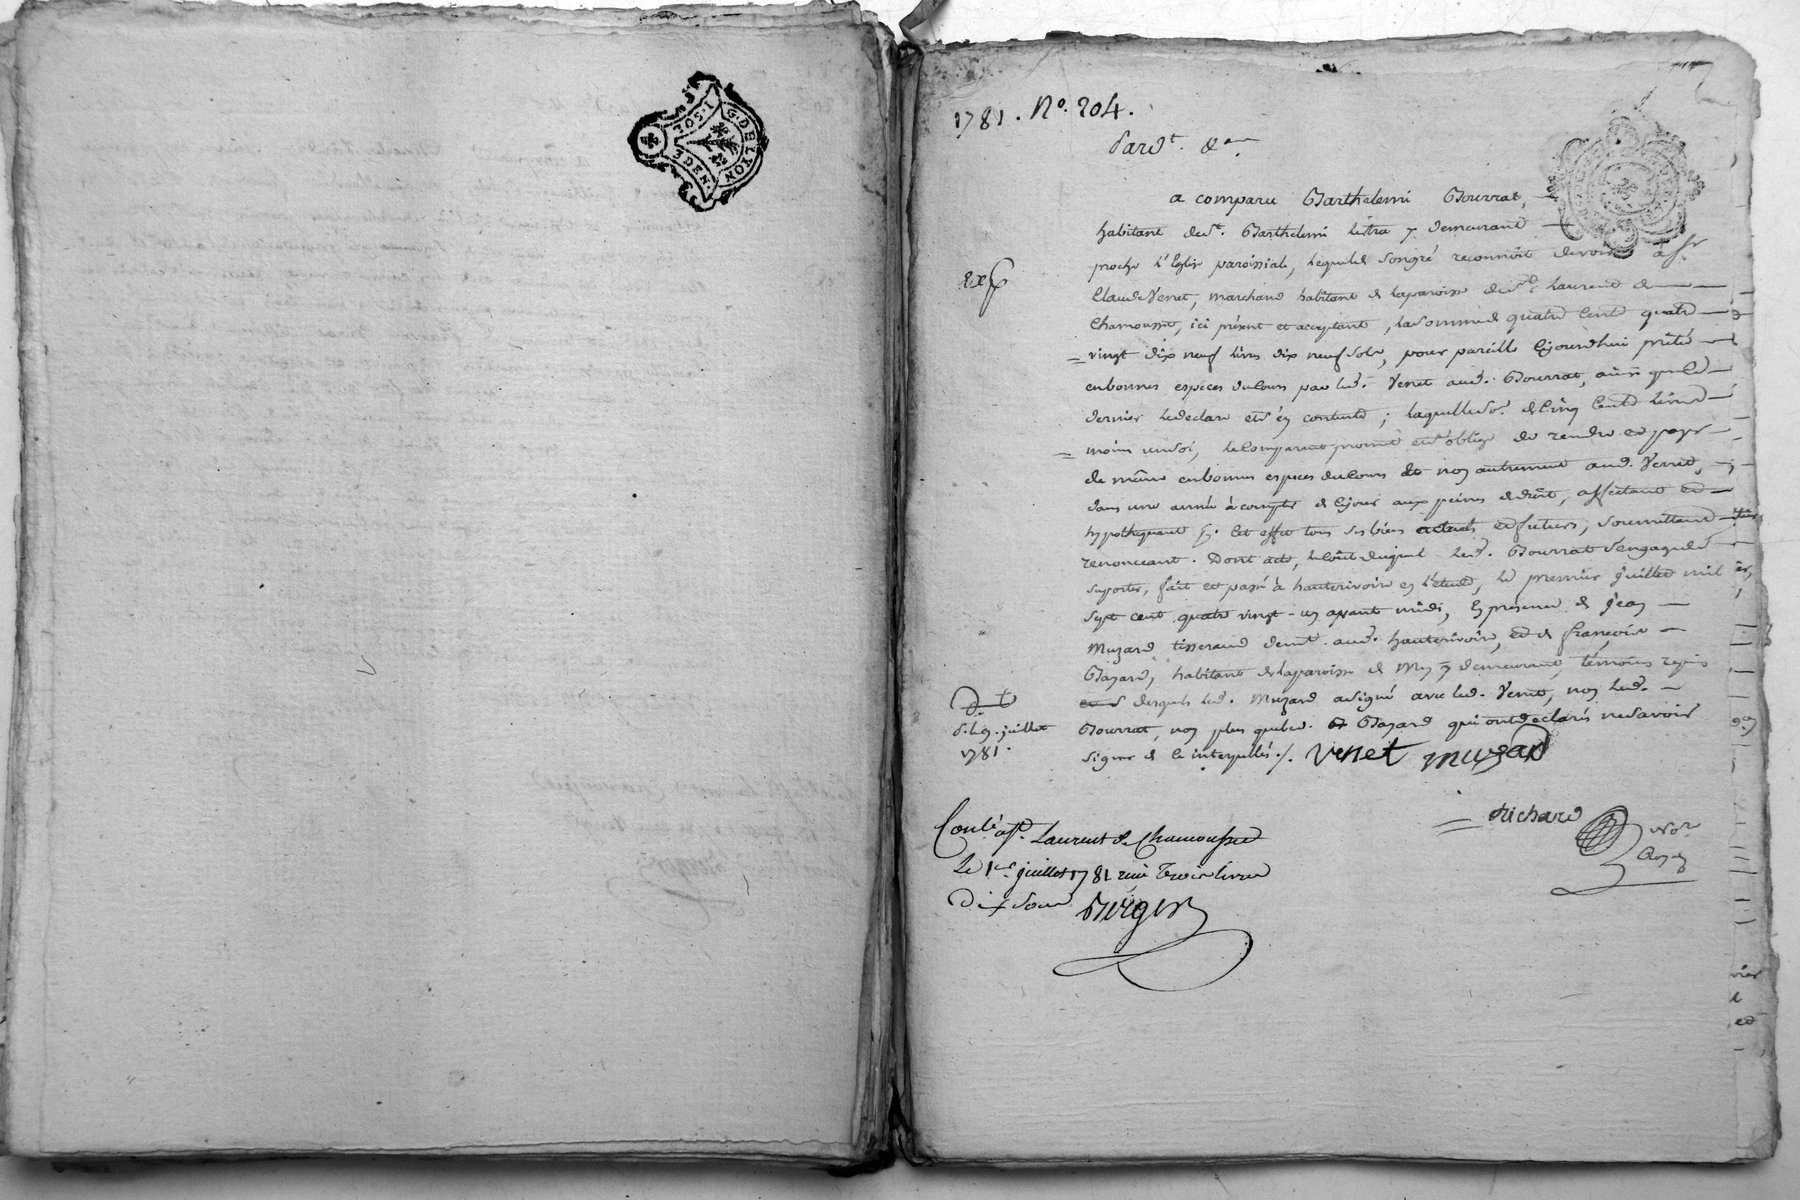 G. DE LYON
1. SOL.
3 DEN.
1781. No. 204.
Pardt. &a.
a comparu Barthelemi Bourrat,
habitant de st. Barthelemi lêtra y demeurant
proche l'Eglise paroissiale, lequel de son gré reconnoit devoir à sr.
Claude Venet, marchand habitant de la paroisse de st. Laurent de
Chamousset, ici présent et acceptant, la somme de quatre Cent quatre
vingt dix neuf livres dix neuf sols, pour pareille cejourdhui prêtée
en bonnes espèces du cours par led. Venet aud. Bourrat, ainsi que ce
dernier le declare et s'en contente; laquelle so. de Cinq Cents livres
moins un sol, le Comparant promet et s'oblige de rendre et payer
de même en bonnes espèces du Cours et non autrement aud. Venet,
dans une année à compter de cejour aux peines de droit, affectant et
hypothequant p. Cet effet tous ses biens actuels et futurs, soumettant
renonceant. Dont acte, le Coût duquel led. Bourrat s'engage de
suporter, fait et passé à hauterivoire en l'étude, le premier juillet mil
sept cent quatre vingt-un avant midi, En présence de jean
Muzard tisserand demt. aud. hauterivoire, et de françois
Bazard, habitant de la paroisse de Mys y demeurant, témoins requis
desquels led. Muzard a signé avec led. Venet, non led.
Bourrat, non plus que led. Bazard qui ont déclarés ne savoir
signer de ce interpellés./. Venet muzard
Exp
juillet
1781.
Richard
Nore
Royal
Conlé. a st. Laurent de Chamousset
Le 1er. juillet 1781 reçu Trois livres
Dix sous Berger